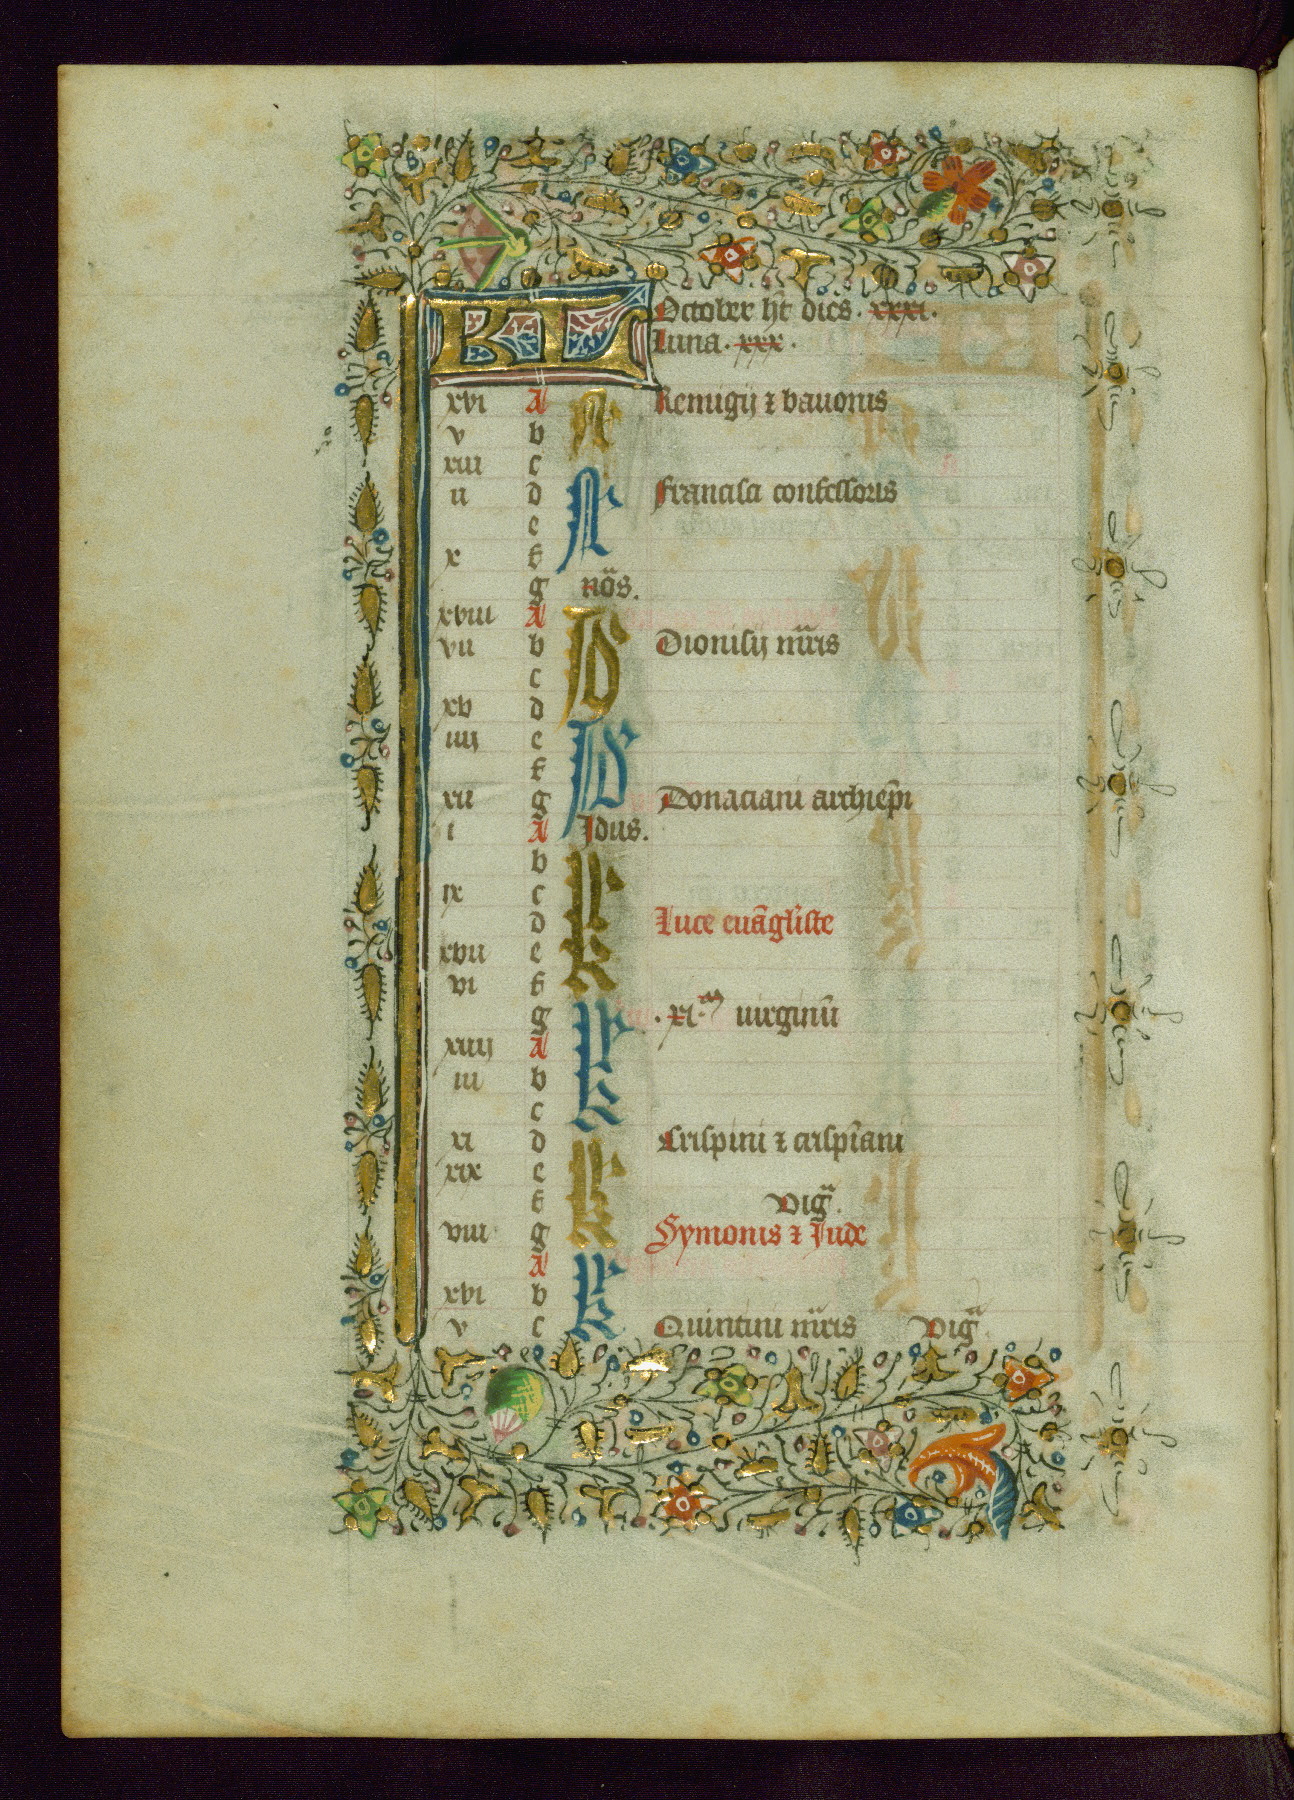 KL October ht dies. xxxi.
Luna. xxx.
xvi A N Remigij ⁊ bauonis
v b
xiii c
ii d N Francisci confessoris
e
x f
g nōs.
xviii A D
vii b Dionisij mr̄is
c
xv d
iiij e D
f
xii g Donaciani archiep̄i
i A Jdus.
b K
ix c
d Luce euāgliste
xvii e K
vi f
g K .xi.m virginū
xiiij A
iii b K
c
xi d K Crispini ⁊ crispiani
xix e
f K vigā.
viii g Symonis ⁊ Jude
A K
xvi b
v c K Quintini mr̄is vigā.